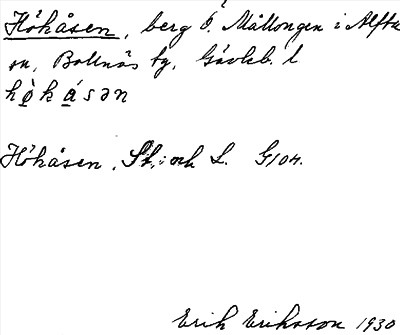 Höhåsen, berg Ö. Mållongen i Alfta
sn, Bollnäs tg, Gävleb. l
hö̀kásən
Höhåsen. Sk. och L. G104.
Erik Eriksson 1930